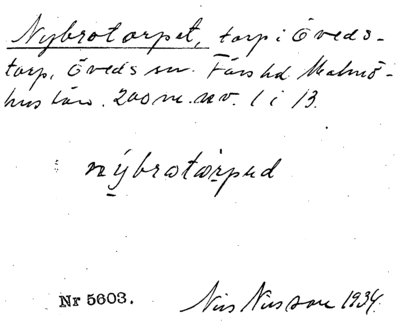 Nybrotorpet, torp i Öveds-
torp, Öveds sn. Färs hd. Malmö-
hus län. 200 m. nv. 1 i 13.
nýbrotòrpəd
Nr 5603.
Nils Nilsson 1934.